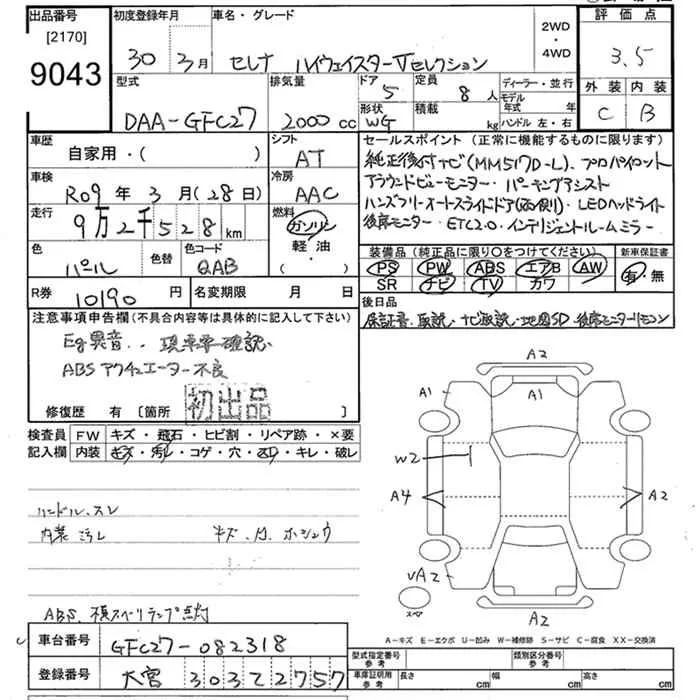 出品番号
[2170]
9043
初度登録年月
30年 3月
車名・グレード
セレナ ハイウェイスターVセレクション
2WD
・
4WD
評価点
3.5
外装 内装
C B
型式
DAA-GFC27
排気量
2000cc
ドア
5
形状
WG
定員
8人
積載
kg
ディーラー・並行
モデル
年式 年
ハンドル 左・右
車歴
自家用・( )
シフト
AT
車検
R09年 3月(28日)
冷房
AAC
走行
9万2千528km
燃料
ガソリン
軽・油
( )
色
パール
色替
色コード
QAB
R券
10190円
名変期限 月 日
セールスポイント (正常に機能するものに限ります)
純正後付ナビ(MM517D-L)、プロパイロット
アラウンドビューモニター・パーキングアシスト
ハンズフリーオートスライドドア(両側)・LEDヘッドライト
後席モニター・ETC2.0・インテリジェントルームミラー
装備品 (純正品に限り○をつけてください)
PS PW ABS エアB AW
SR ナビ TV カワ
新車保証書
有・無
後日品
保証書、取説、ナビ取説、地図SD、後席モニターリモコン
注意事項申告欄 (不具合内容等は具体的に記入して下さい)
Eg異音、現車要確認
ABS アクチュエーター不良
修復歴 有 [箇所 ]
初出品
検査員
記入欄
FW キズ・飛石・ヒビ割・リペア跡・×要
内装 キズ・汚れ・コゲ・穴・スレ・キレ・破レ
ハンドル、スレ
内装 ヨゴレ
キズ、凹、ホシュウ
ABS、横スベリランプ点灯
A2
A1
A1
W2
A4
A2
UA2
A2
スペア
A-キズ E-エクボ U-凹み W-補修跡 S-サビ C-腐食 XX-交換済
車台番号
GFC27-082318
登録番号
大宮 303 て 2757
型式指定番号
参考
類別区分番号
参考
車庫証明用
参考
長さ cm
幅 cm
高さ cm